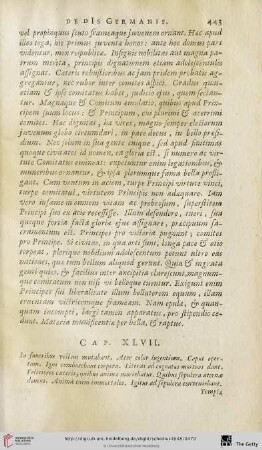 DE DIS GERMANIS. 443
vel propinquus scuto frameaque juvenem ornant. Hæc apud
illos toga, hic primus juventæ honos: ante hoc domus pars
videntur, mox reipublicæ. Insignis nobilitas aut magna pa-
trum merita, principis dignationem etiam adolescentulis
assignat. Cæteris robustioribus ac jam pridem probatis ag-
gregantur, nec rubor inter comites aspici. Gradus quin
etiam & ipse comitatus habet, judicio ejus, quem sectan-
tur. Magnaque & Comitum æmulatio, quibus apud Princi-
pem suum locus: & Principum, cui plurimi & acerrimi
comites. Hæc dignitas, hæ vires, magno semper electorum
juvenum globo circumdari, in pace decus, in bello præsi-
dium. Nec solum in sua gente cuique, sed apud finitimas
quoque civitates id nomen, ea gloria est, si numero ac vir-
tute Comitatus emineat: expetuntur enim legationibus, &
muneribus ornantur, & ipsa plerumque fama bella profli-
gant. Cum ventum in aciem, turpe Principi virtute vinci,
turpe comitatui, virtutem Principis non adæquare. Jam
vero infame in omnem vitam ac probrosum, superstitem
Principi suo ex acie recessisse. Illum defendere, tueri, sua
quoque fortia facta gloriæ ejus assignare, præcipuum sa-
cramentum est. Principes pro victoria pugnant, comites
pro Principe. Si civitas, in qua orti sunt, longa pace & otio
torpeat: plerique nobilium adolescentum petunt ultro eas
nationes, quæ tum bellum aliquod gerunt. Quia & ingrata
genti quies, & facilius inter ancipitia clarescunt, magnum-
que comitatum non nisi vi belloque tuentur. Exigunt enim
Principis sui liberalitate illum bellatorem equum, illam
cruentam victricemque frameam. Nam epulæ, & quan-
quam incompti, largi tamen apparatus, pro stipendio ce-
dunt. Materia munificentiæ per bella, & raptus.
CAP. XLVII.
In funeribus vestem mutabant.